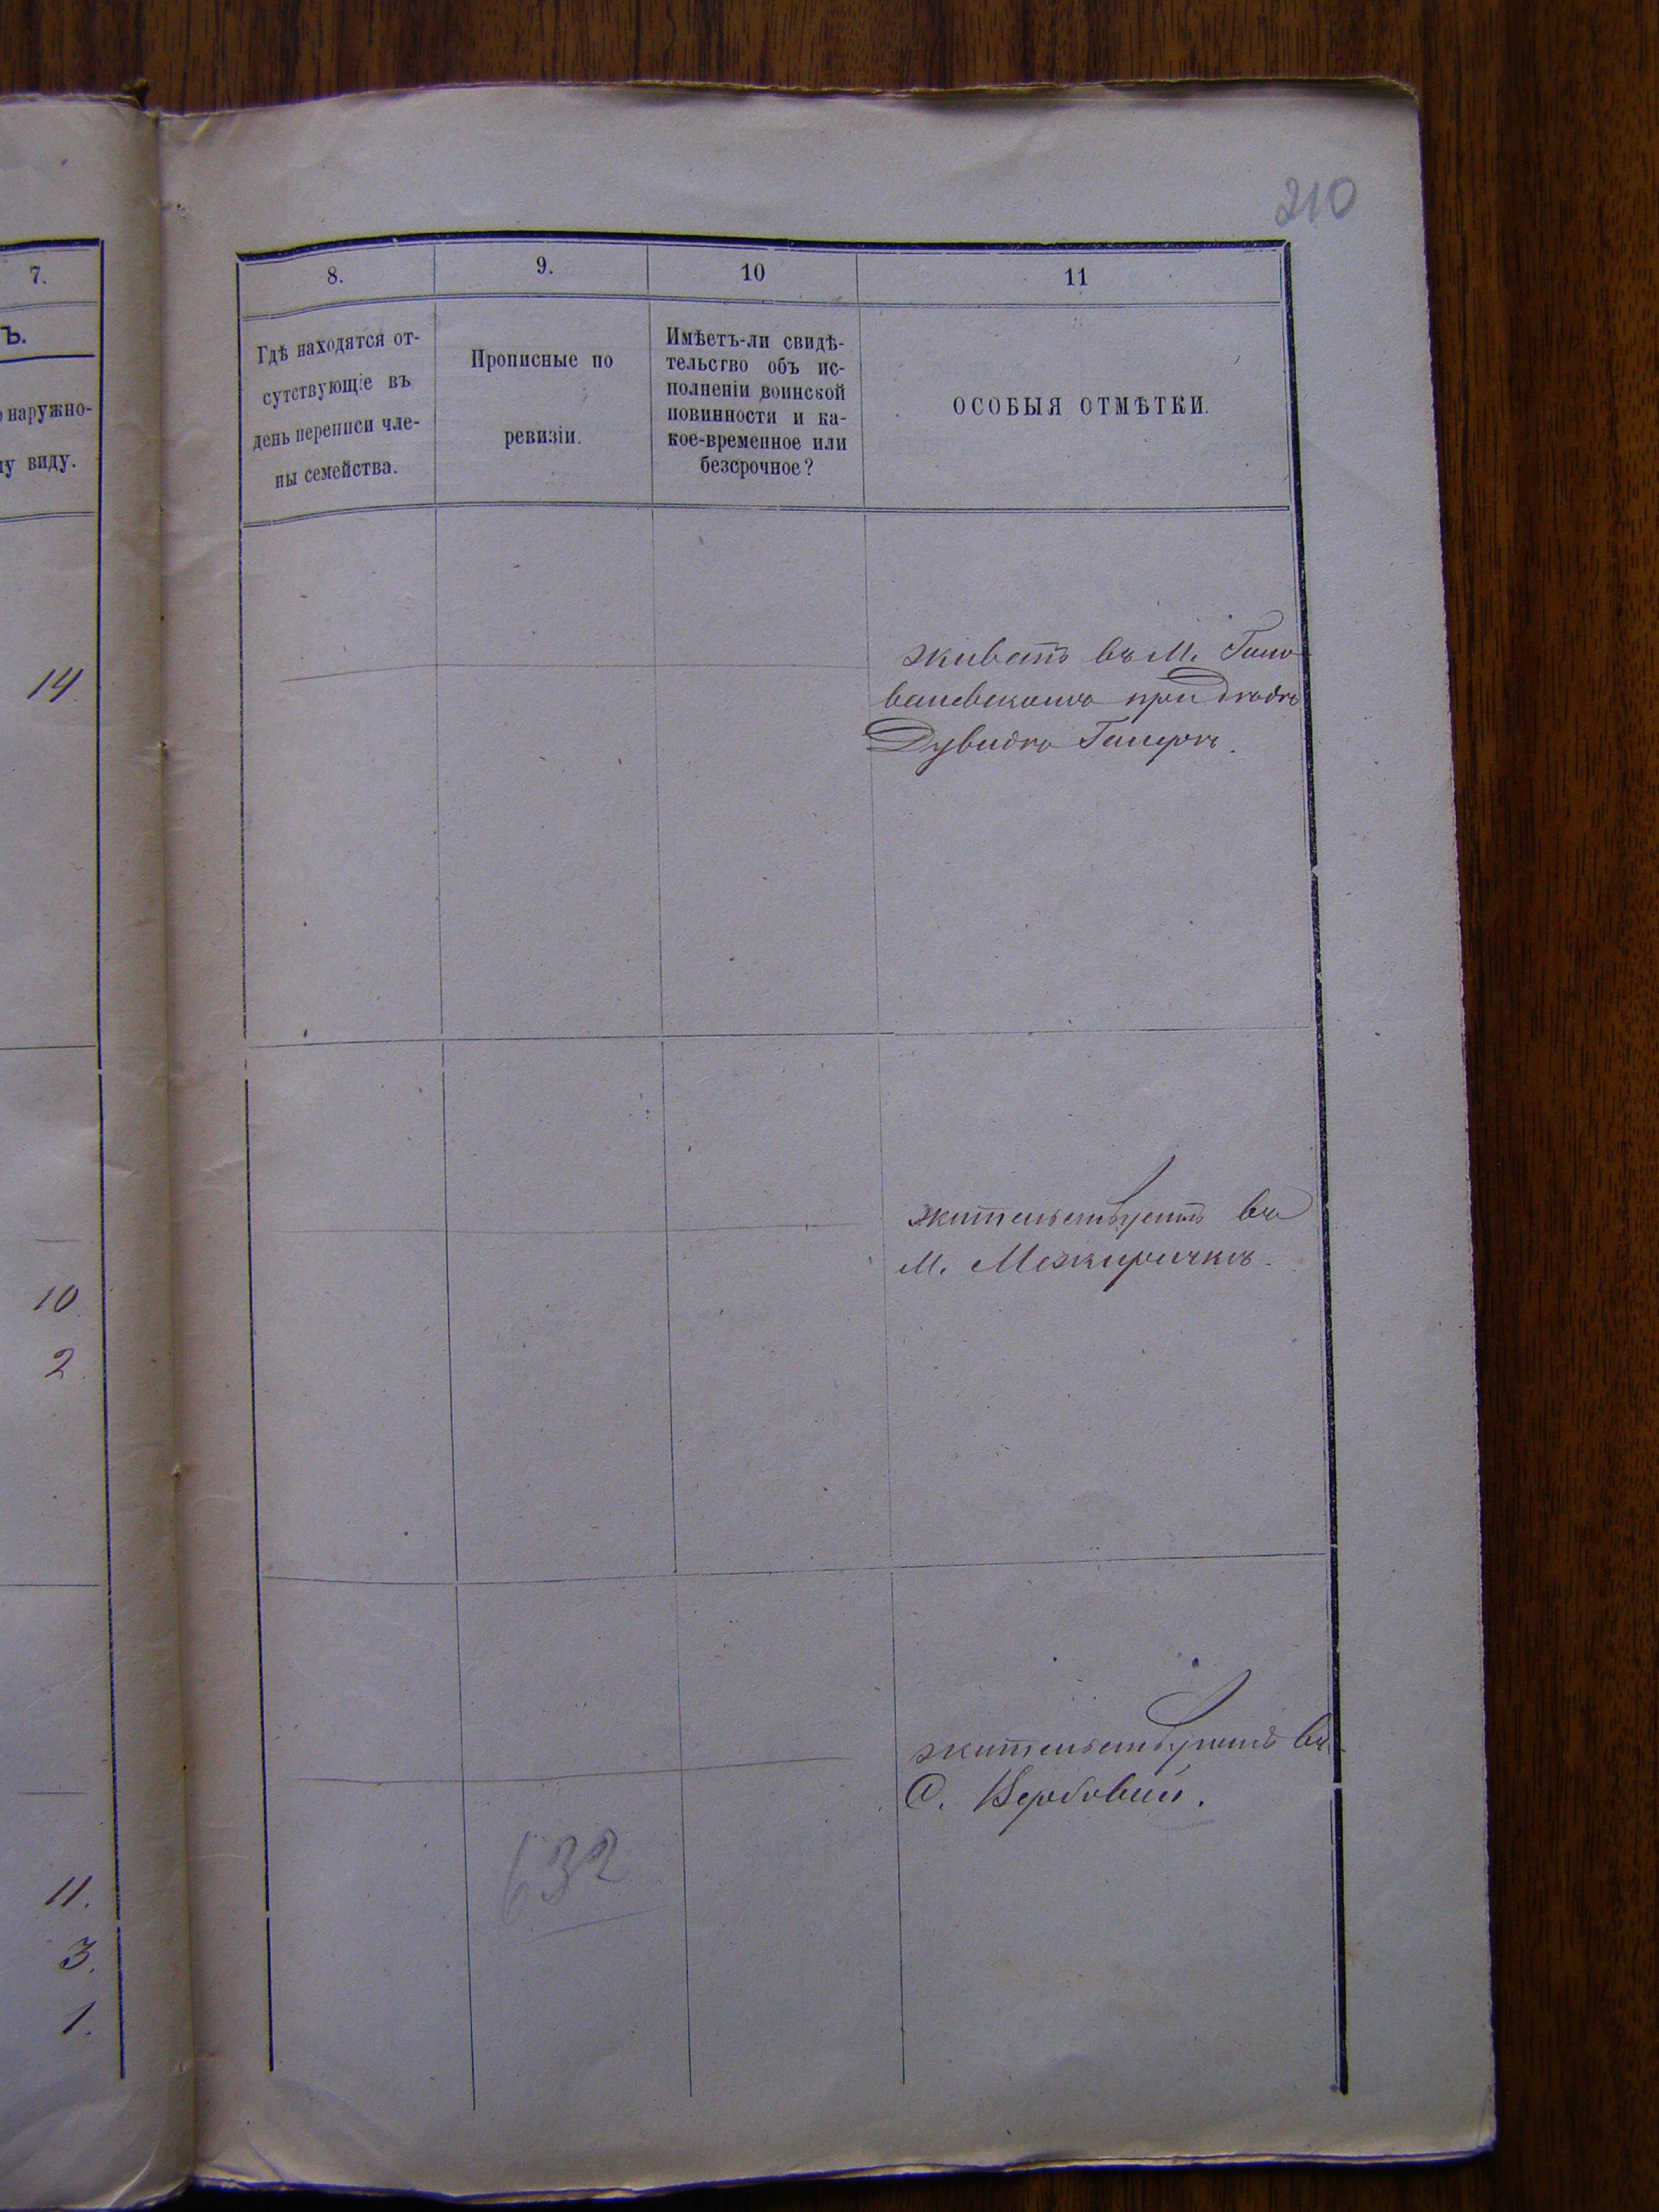 210
7.
Ъ.
наружно-
виду.
14
10
2
11.
3.
1.
8.
9.
10
11
Гдѣ находятся от-
сутствующіе въ
день переписи чле-
ны семейства.
Прописные по
ревизіи.
Имѣетъ-ли свидѣ-
тельство объ ис-
полненіи воинской
повинности и ка-
кое-временное или
безсрочное?
ОСОБЫЯ ОТМѢТКИ.
живетъ въ М. Голо
ваневскомъ при дядѣ
Дувидѣ
жительствуетъ въ
М. Межиричкѣ.
жительствуетъ въ
С. Вербовый.
632